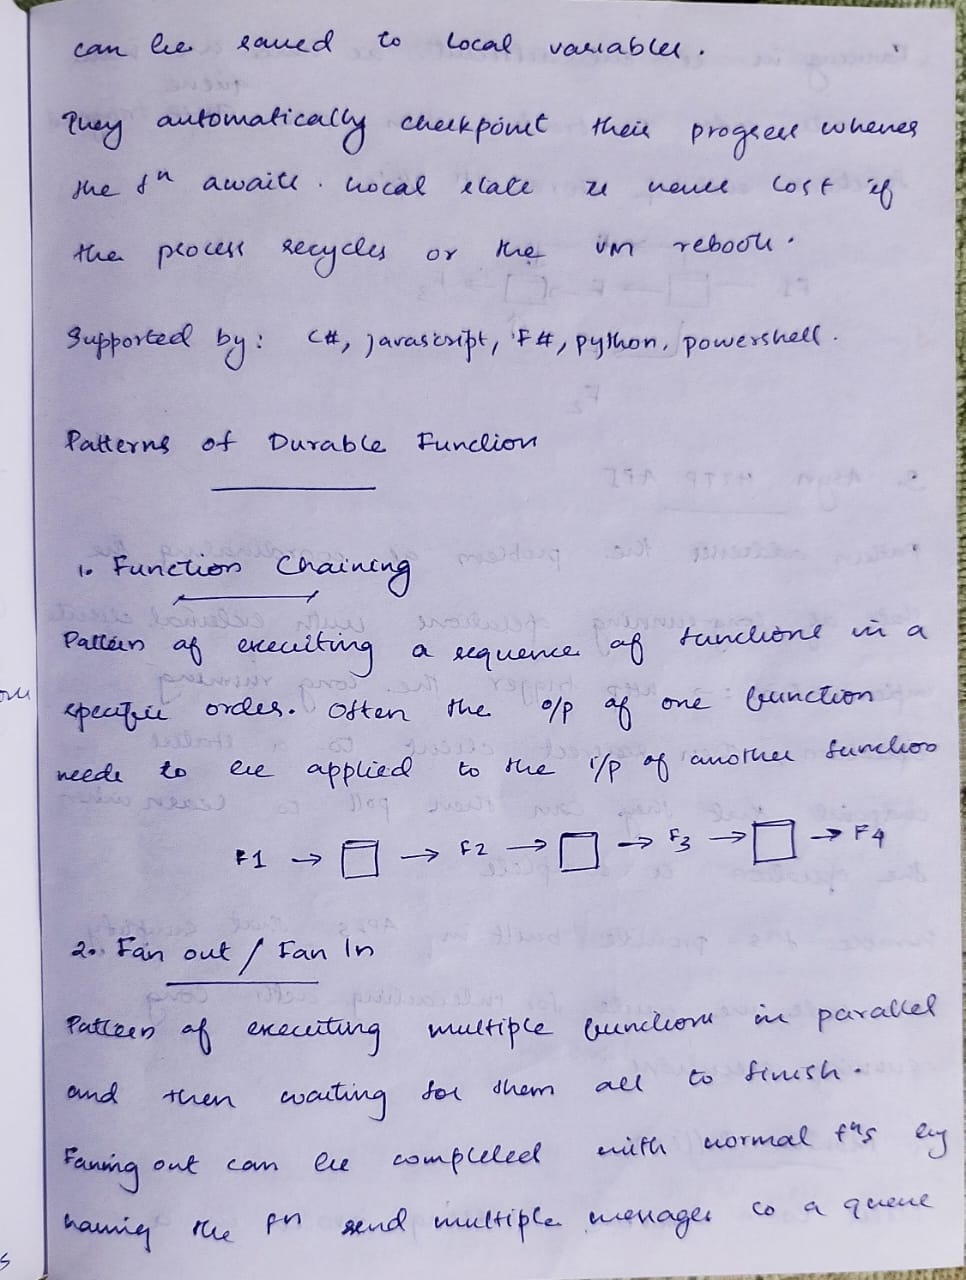 can be saved to local variables.
They automatically checkpoint their progress whenever
the fⁿ awaits. Local state is never lost if
the process recycles or the VM reboots.
Supported by: C#, javascript, F#, python, powershell.
Patterns of Durable Function
1. Function Chaining
Pattern of executing a sequence of functions in a
specific order. Often the o/p of one function
needs to be applied to the i/p of another function
F1 → □ → F2 → □ → F3 → □ → F4
2. Fan out / Fan In
Pattern of executing multiple functions in parallel
and then waiting for them all to finish.
Faning out can be completed with normal fⁿs by
having the fn send multiple messages to a queue